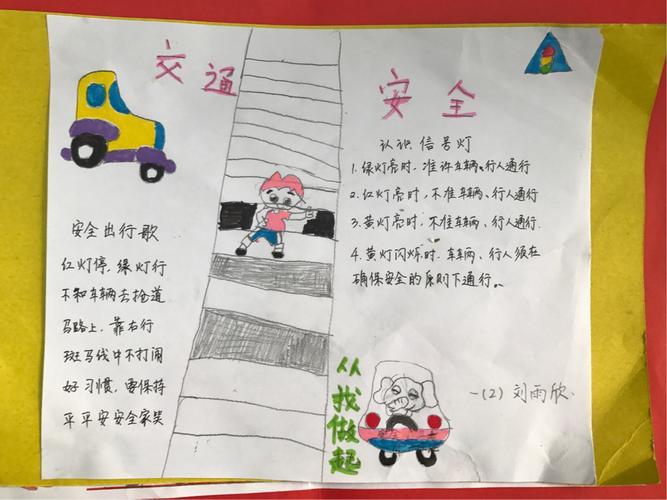 交通安全
安全出行歌
红灯停，绿灯行
不和车辆去抢道
马路上，靠右行
斑马线中不打闹
好习惯，要保持
平平安安全家笑
认识信号灯
1. 绿灯亮时，准许车辆、行人通行
2. 红灯亮时，不准车辆、行人通行
3. 黄灯亮时，不准车辆、行人通行.
4. 黄灯闪烁时.车辆、行人须在
确保安全的原则下通行。
从我做起
一(2) 刘雨欣